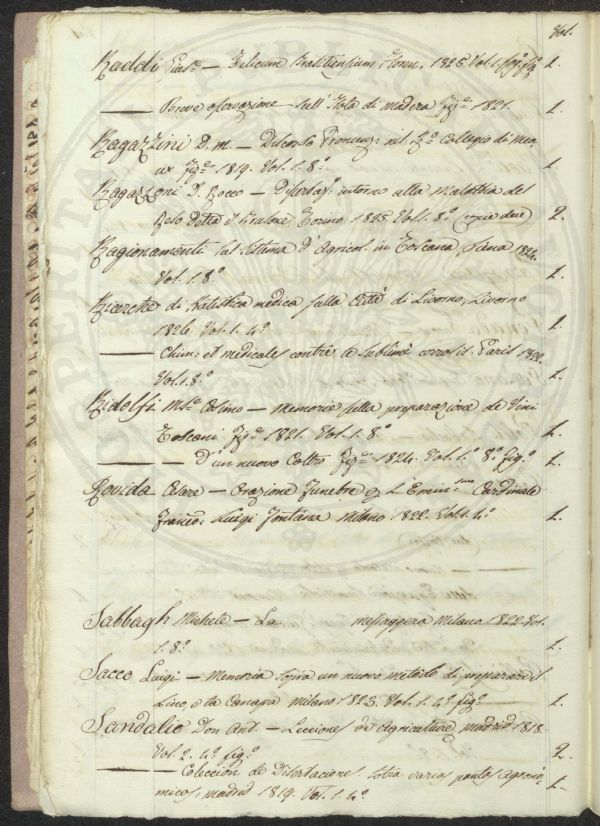 Vol.
Raddi Gius.e — Filicum Brasiliensium. Flor. 1825 Vol. 1. fig.to 1.
— Breve osservazione sull'Isola di Madera Fir.e 1821. 1.
Ragazzini D. M. — Discorso Pronunz. nel Collegio di
1819. Vol. 1. 8.o 1.
Ragazzoni D. Rocco — Dissertaz.e intorno alla Malattia del
Riso detta il Brusone Torino 1825. Vol. 1. 8.o (copie due) 2.
Ragionamenti sul sistema d'Agricol. in Toscana, Siena 1824.
Vol. 1. 8.o 1.
Ricerche di statistica medica sulla Città di Livorno, Livorno
1826. Vol. 1. 4.o 1.
— Chim. et medicales contre le sublimé corrosif. Paris
Vol. 1. 8.o 1.
Ridolfi M.se Cosimo — Memoria sulla preparazione de Vini
Toscani Fir.e 1821. Vol. 1. 8.o 1.
— D'un nuovo Coltro Fir.e 1824. Vol. 1.o 8.o Fig.o 1.
Rovida Cesare — Orazione Funebre L'Emin.mo Cardinale
Franco. Luigi Fontana Milano 1822. Vol. 1. 4.o 1.
Sabbagh Michele — La messaggera Milano 1822. Vol.
1. 8.o 1.
Sacco Luigi — Memoria sopra un nuovo metodo di preparare il
Lino, e la Canapa Milano 1823. Vol. 1. 4.o fig.o 1.
Sandalio Don Ant. — Lecciones de Agriculture, Madrid 1818.
Vol 2. 4.o fig.o 2.
— Coleccion de Disertaciones sobra varia pontos agrono-
micos, Madrid 1819. Vol. 1. 4.o 1.